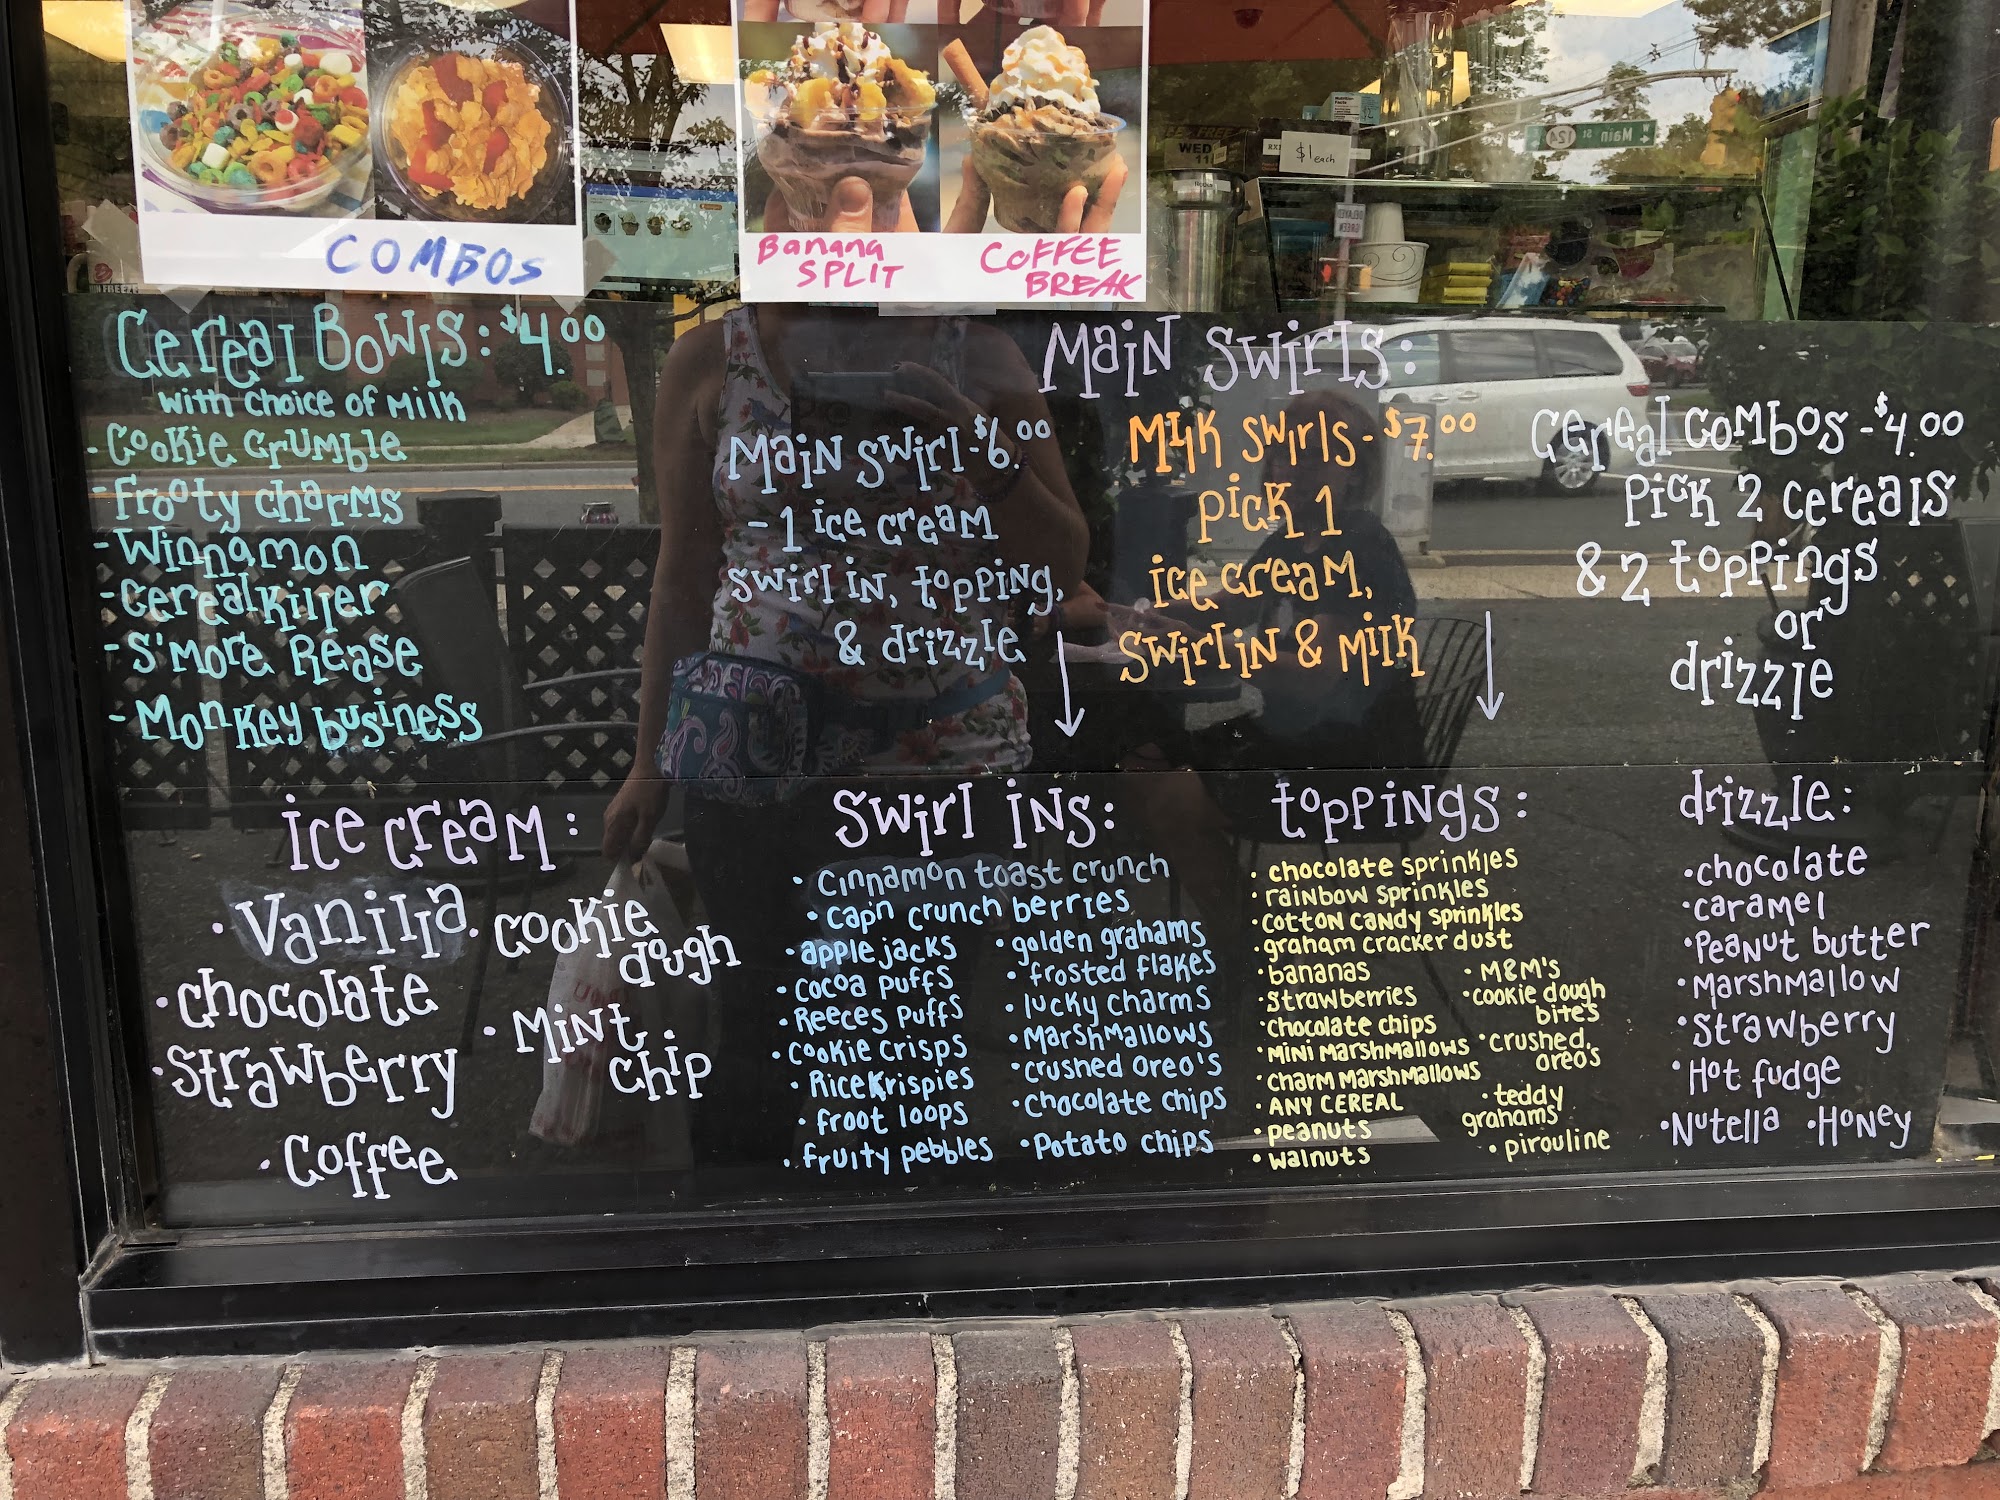 COMBOS
Banana
SPLIT
COFFEE
BREAK
$1 each
Main St
Cereal Bowls: $4.00
with choice of Milk
- Cookie Crumble
- Frooty Charms
- Winnamon
- Cereal Killer
- S'more Rease
- Monkey business
Main Swirls:
Main Swirl - $6.00
- 1 ice cream
swirl in, topping,
& drizzle
Milk Swirls - $7.00
Pick 1
ice cream,
swirl in & Milk
Cereal Combos - $4.00
Pick 2 cereals
& 2 toppings
or
drizzle
ice cream:
• Vanilla
• Chocolate
• Strawberry
• Coffee
• Cookie
dough
• Mint
chip
Swirl ins:
• Cinnamon toast crunch
• Cap'n crunch berries
• apple jacks
• cocoa Puffs
• Reeces Puffs
• Cookie crisps
• Rice Krispies
• froot loops
• fruity pebbles
• golden grahams
• frosted flakes
• lucky charms
• Marshmallows
• crushed Oreo's
• Chocolate chips
• Potato chips
toppings:
• chocolate sprinkles
• rainbow sprinkles
• cotton candy sprinkles
• graham cracker dust
• bananas
• strawberries
• chocolate chips
• Mini Marshmallows
• charm Marshmallows
• ANY CEREAL
• peanuts
• walnuts
• M&M's
• cookie dough
bite's
• crushed
oreo's
• teddy
grahams
• pirouline
drizzle:
• chocolate
• caramel
• Peanut butter
• Marshmallow
• Strawberry
• Hot fudge
• Nutella • Honey